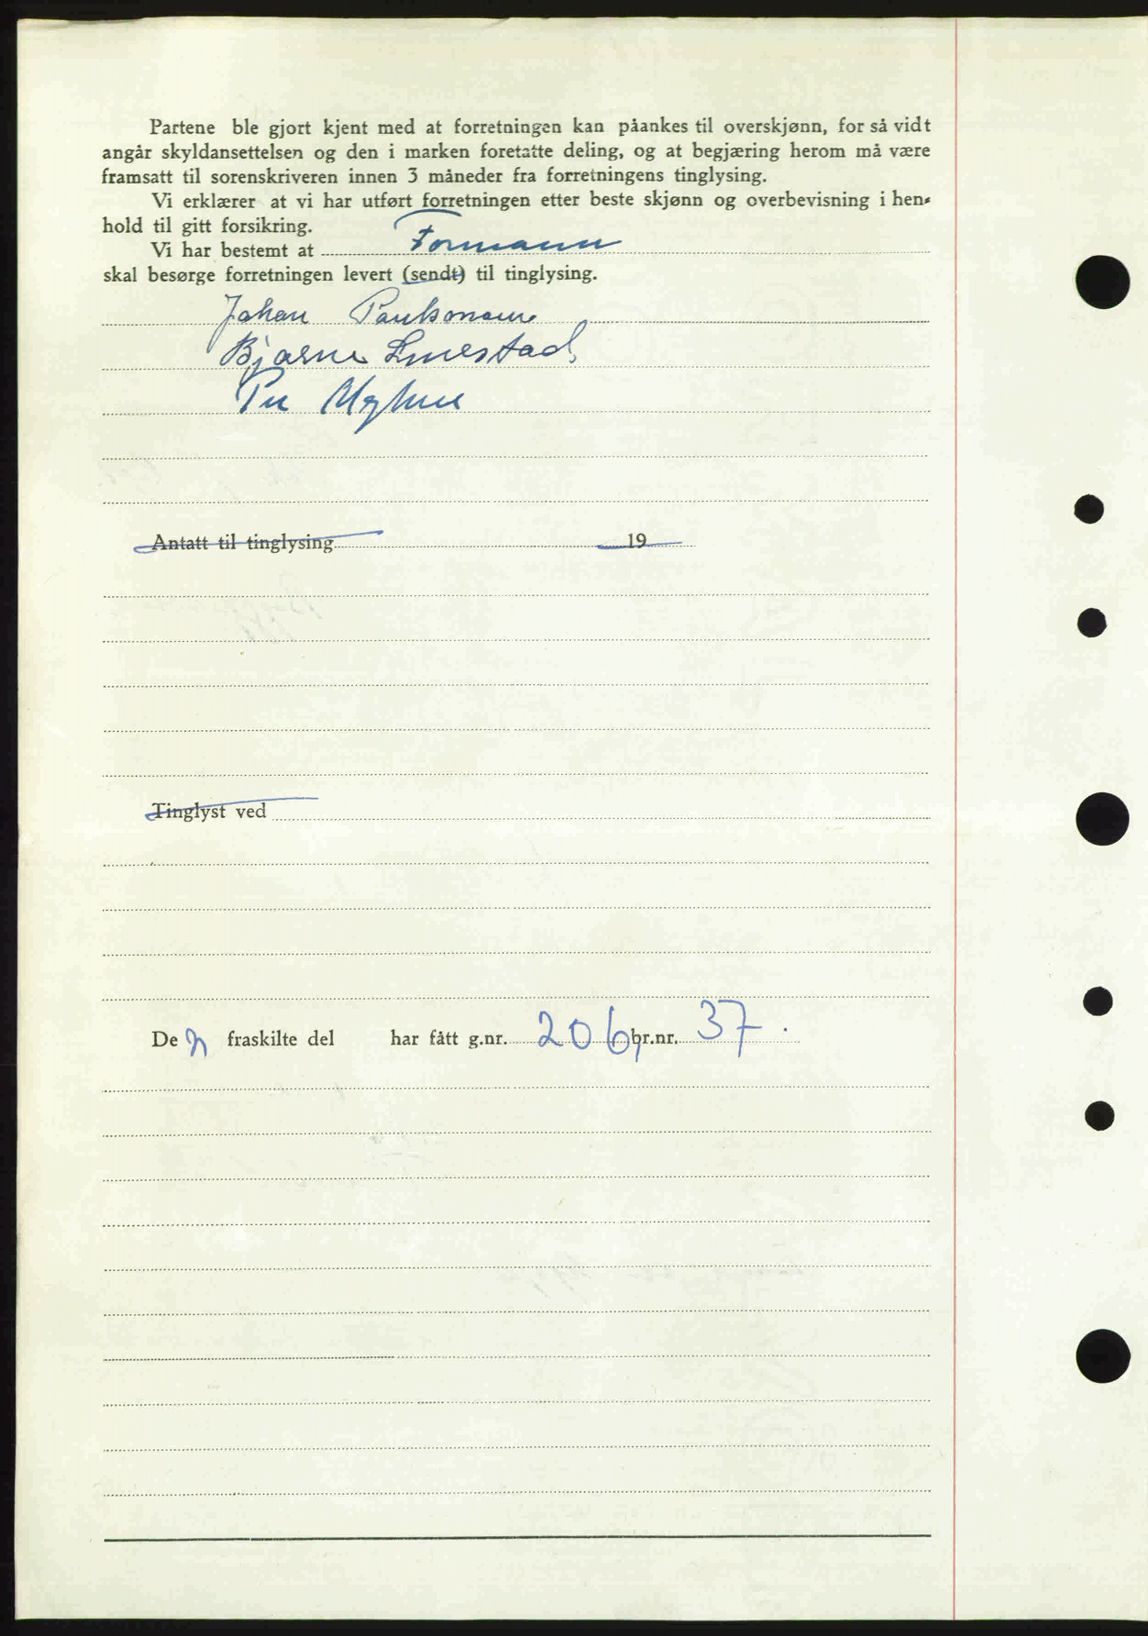 Partene ble gjort kjent med at forretningen kan påankes til overskjønn, for så vidt
angår skyldansettelsen og den i marken foretatte deling, og at begjæring herom må være
framsatt til sorenskriveren innen 3 måneder fra forretningens tinglysing.
Vi erklærer at vi har utført forretningen etter beste skjønn og overbevisning i hen-
hold til gitt forsikring.
Vi har bestemt at Formann
skal besørge forretningen levert (sendt) til tinglysing.
Johan
Bjarne
Antatt til tinglysing 19
Tinglyst ved
De n fraskilte del har fått g.nr. 206, br.nr. 37.